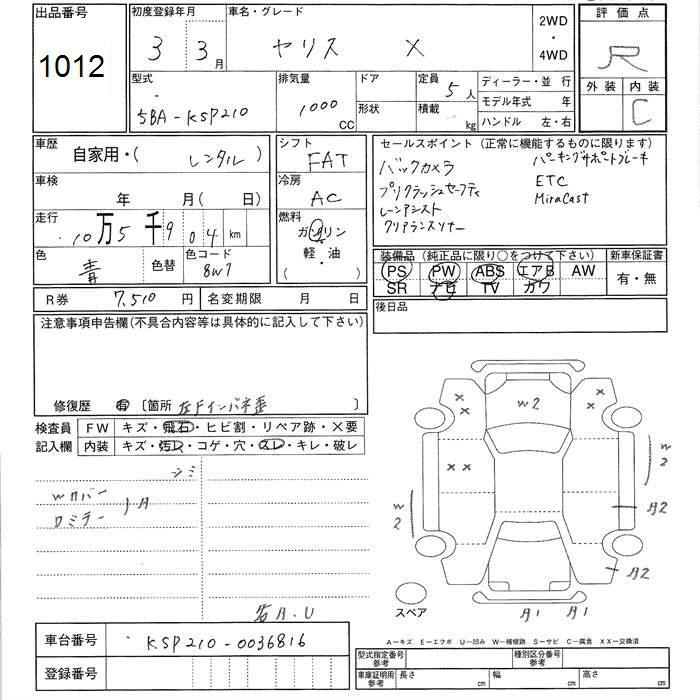 出品番号
1012
初度登録年月
3 3月
車名・グレード
ヤリス X
2WD
・
4WD
評価点
R
外装 内装
C
型式
5BA-KSP210
排気量
1000 CC
ドア
形状
定員
5人
積載
kg
ディーラー・並 行
モデル年式 年
ハンドル 左・右
車歴
自家用・(レンタル)
車検
年 月( 日)
走行
10万5千904km
色
青
色替
色コード
8W7
シフト
FAT
冷房
AC
燃料
ガソリン
・
軽・油
セールスポイント(正常に機能するものに限ります)
バックカメラ
プリクラッシュセーフティ
レーンアシスト
クリアランスソナー
パーキングサポートブレーキ
ETC
MiraCast
装備品(純正品に限り○をつけて下さい)
PS PW ABS エアB AW
SR ナビ TV カワ
新車保証書
有・無
R券 7,510円
名変期限 月 日
後日品
注意事項申告欄(不具合内容等は具体的に記入して下さい)
修復歴 有 〔箇所 左Fインパネ歪 〕
検査員
記入欄
FW キズ・飛石・ヒビ割・リペア跡・×要
内装 キズ・汚レ・コゲ・穴・スレ・キレ・破レ
シミ
Wカバー
ロミラー
A
× ×
W2
×
×
× ×
W
2
W
2
A2
A2
A1 A1
スペア
A−キズ E−エクボ U−凹み W−補修跡 S−サビ C−腐食 XX−交換済
車台番号
KSP210-0036816
登録番号
型式指定番号
参考
種別区分番号
参考
車庫証明用
参考
長さ cm
幅 cm
高さ cm